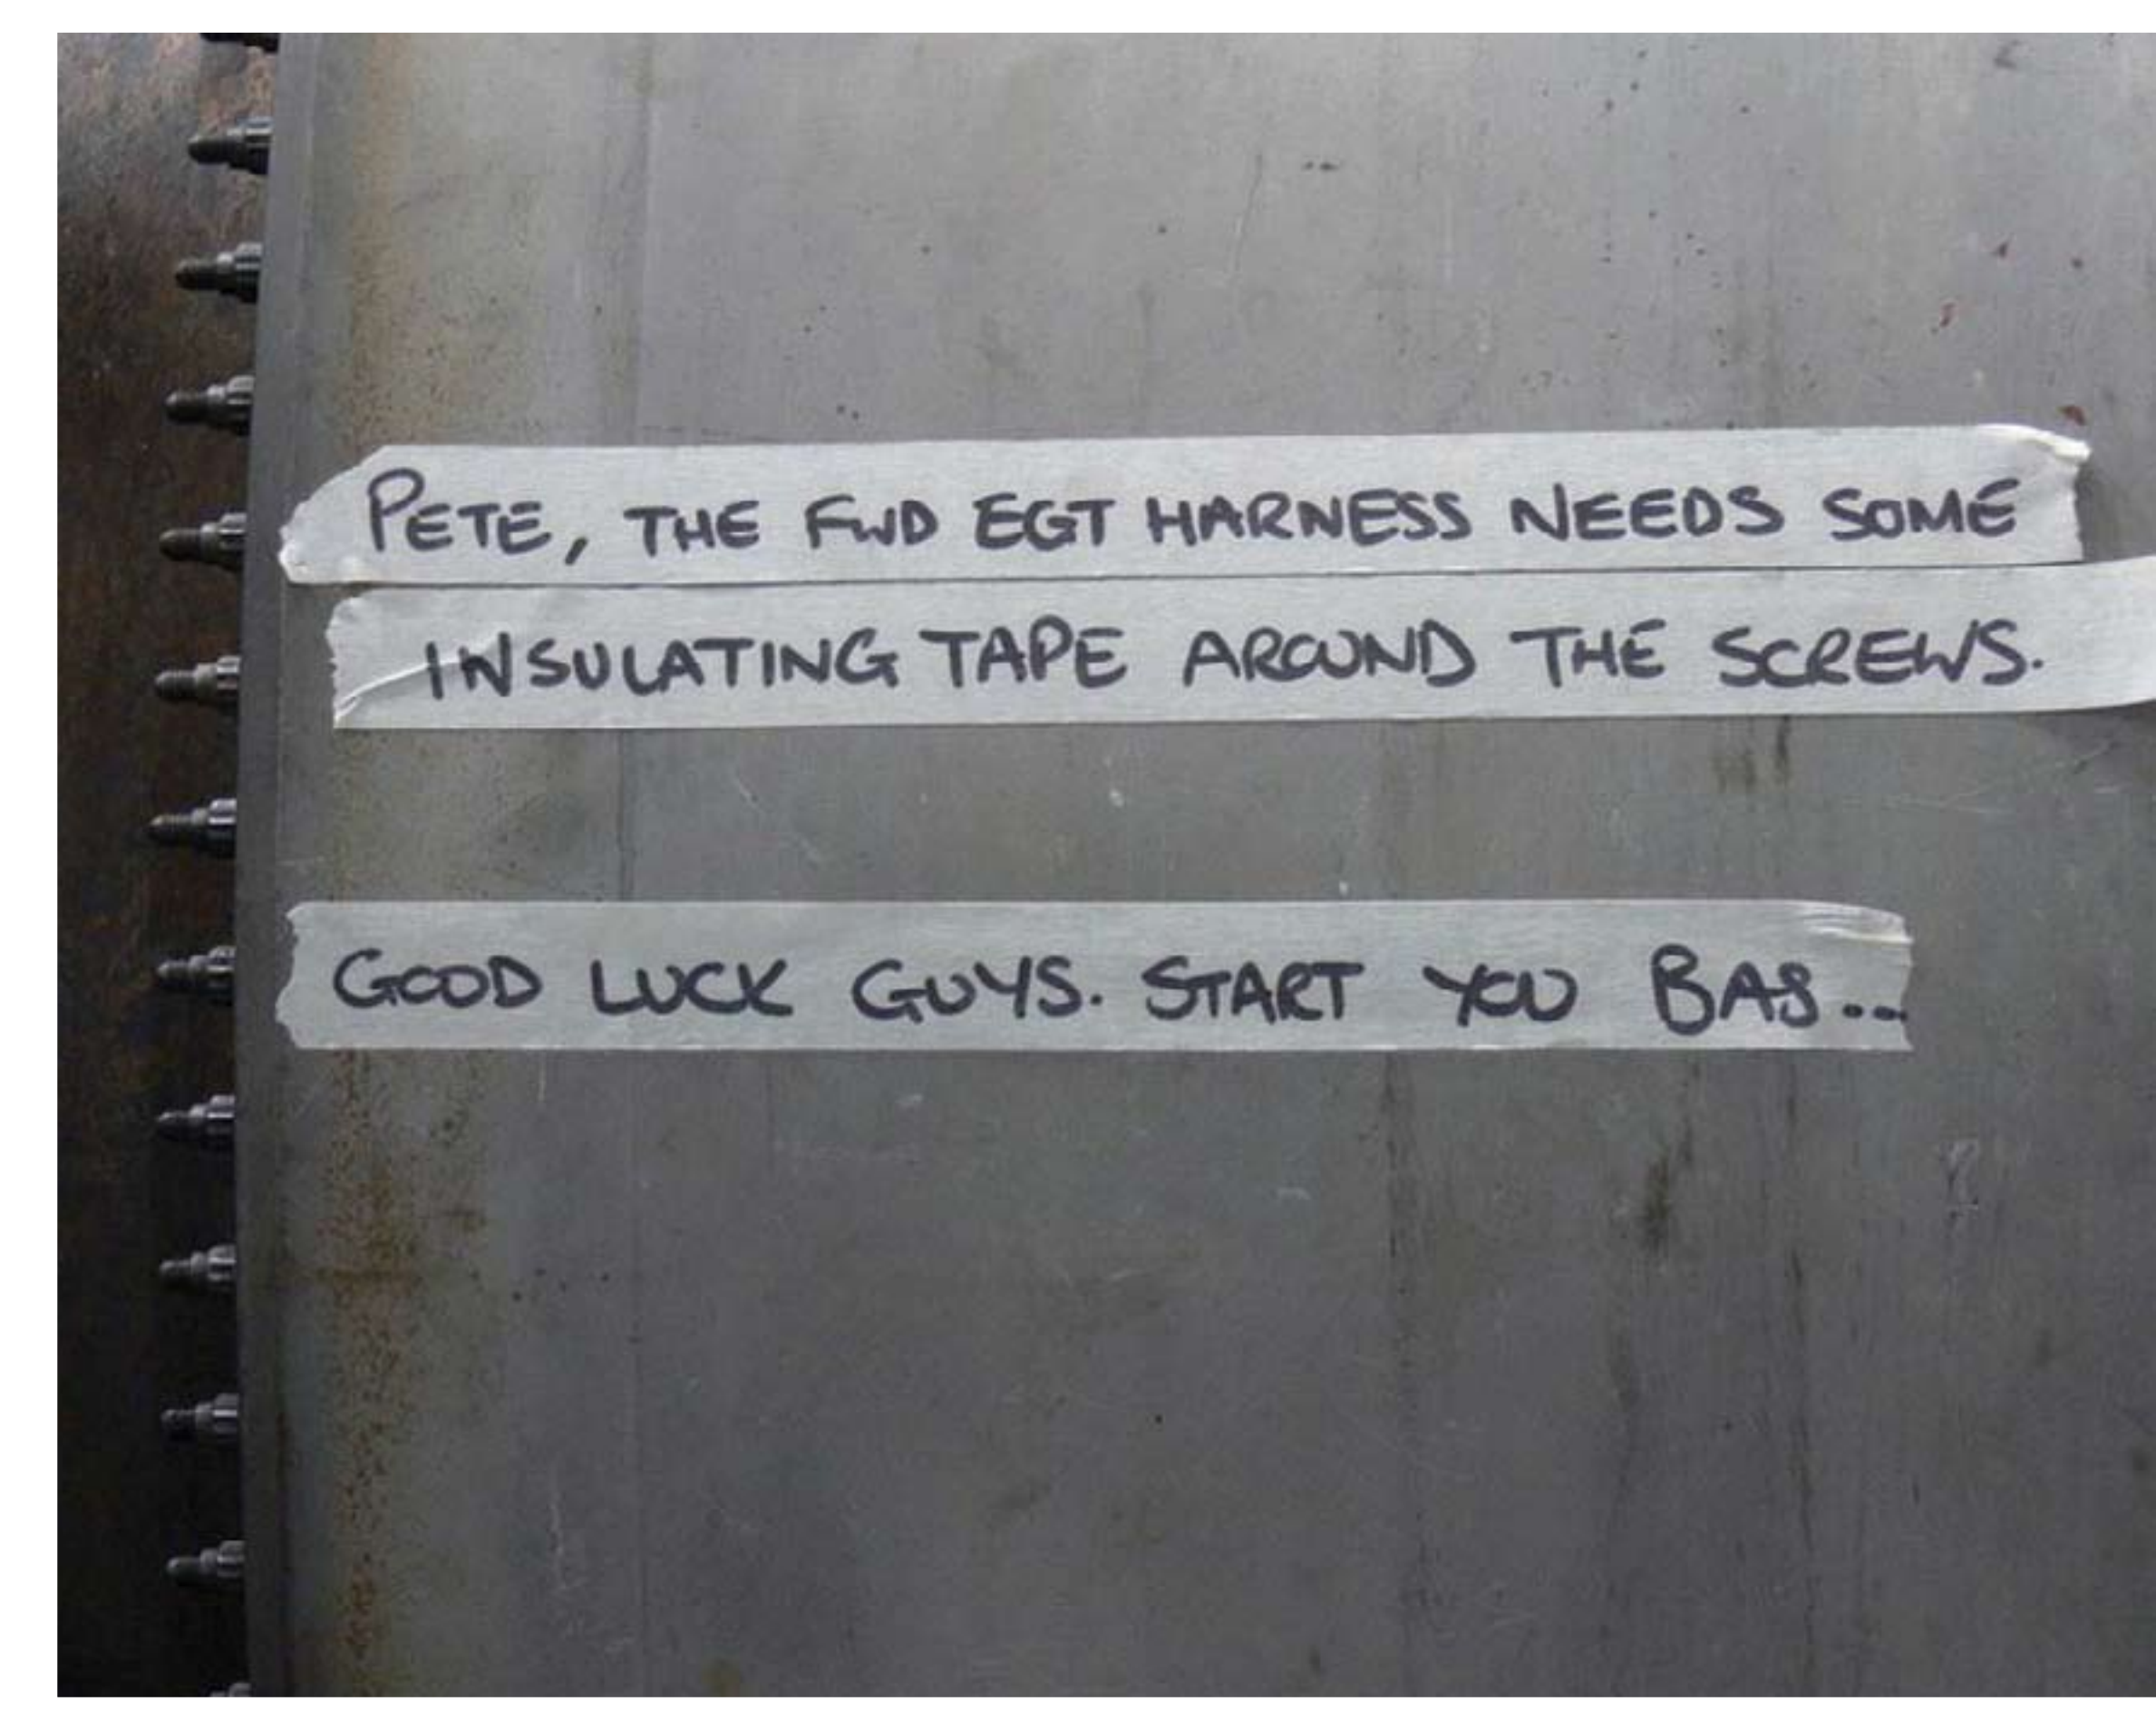 PETE, THE FWD EGT HARNESS NEEDS SOME
INSULATING TAPE AROUND THE SCREWS.
GOOD LUCK GUYS. START YOU BAS...